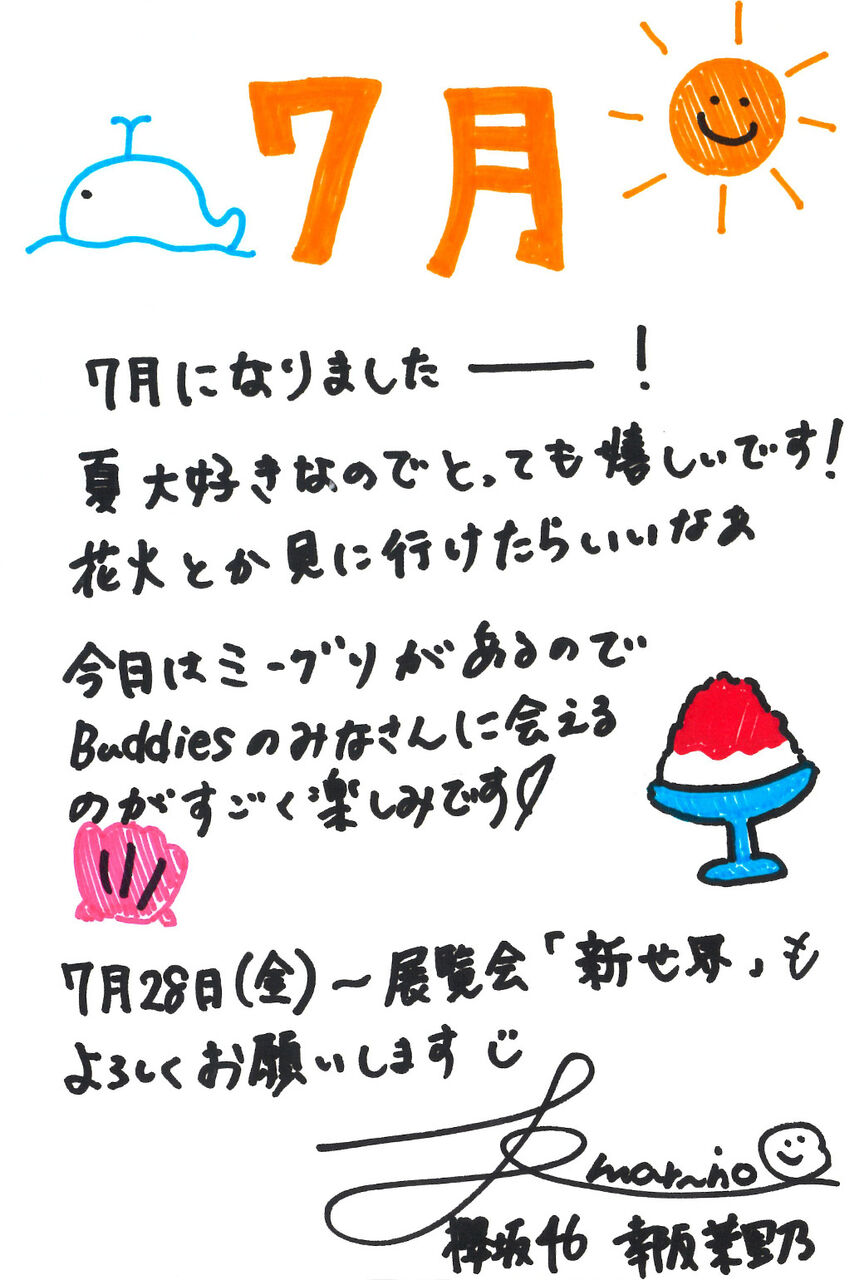 7月
7月になりました――!
夏大好きなのでとっても嬉しいです!
花火とか見に行けたらいいなぁ
今月はミーグリがあるので
Buddiesのみなさんに会える
のがすごく楽しみです♡
7月28日(金)~展覧会「新せ界」も
よろしくお願いします
marino
櫻坂46 幸阪茉里乃